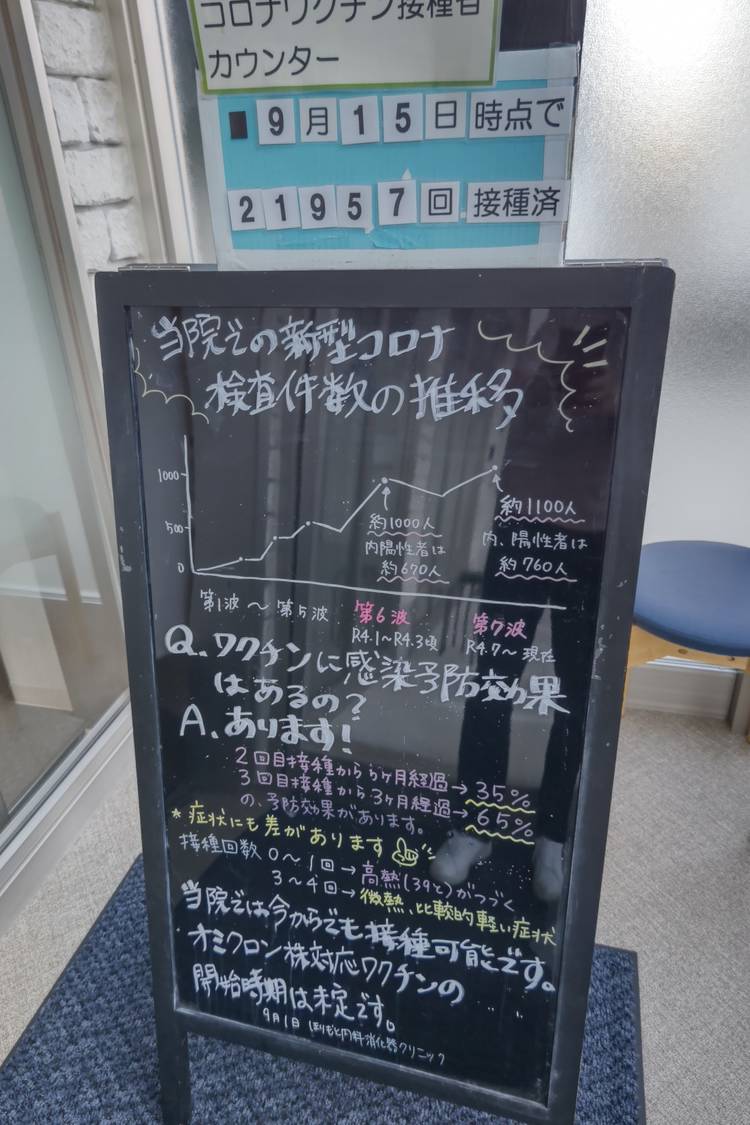 コロナワクチン接種者
カウンター
9月15日時点で
21957回接種済
当院での新型コロナ
検査件数の推移
1000
500
0
約1000人
内陽性者は
約670人
約1100人
内、陽性者は
約760人
第1波～第5波
第6波
R4.1～R4.3頃
第7波
R4.7～現在
Q.ワクチンに感染予防効果
はあるの?
A.あります!
2回目接種から6ヶ月経過→35%
3回目接種から3ヶ月経過→65%
の、予防効果があります。
*症状にも差があります
接種回数 0～1回→高熱(39℃)がつづく
3～4回→微熱、比較的軽い症状
当院では今からでも接種可能です。
オミクロン株対応ワクチンの
開始時期は未定です。
9月1日 ほりもと内科消化器クリニック